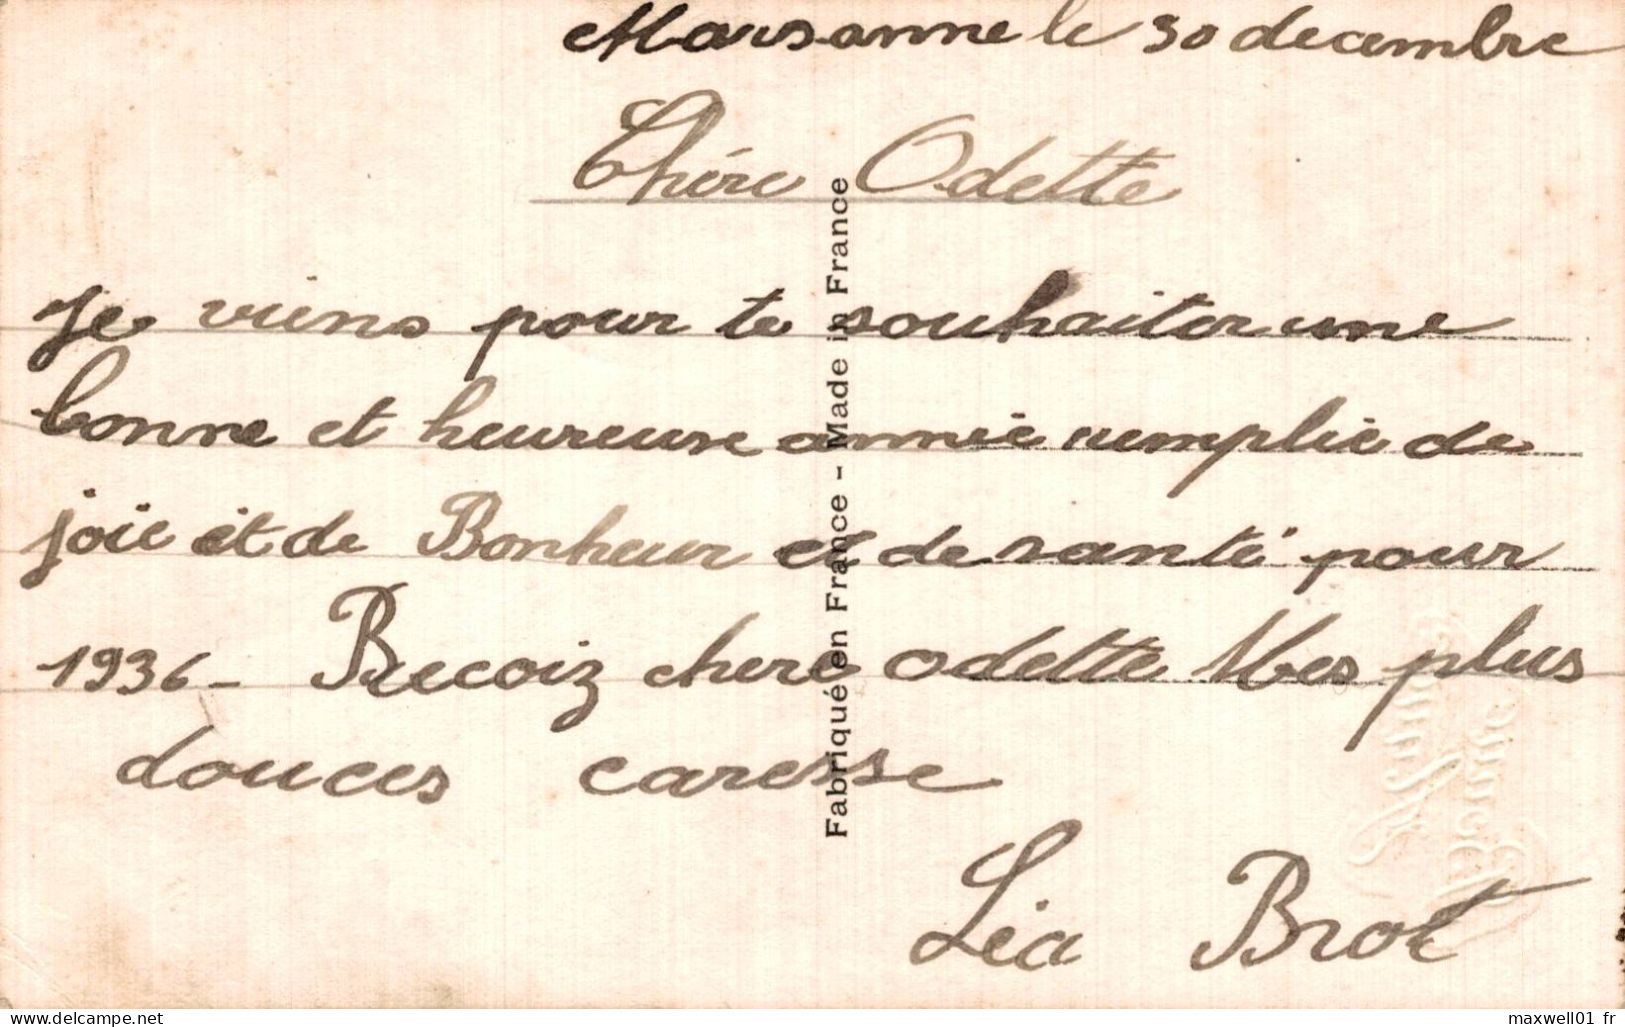 Marsanne le 30 decembre
Chére Odette
Je viens pour te souhaiter une
bonne et heureuse année remplie de
joie et de Bonheur et de santé pour
1936 - Recoiz chere odette Mes plus
douces caresse
Léa Brot
Fabriqué en France - Made in France
www.delcampe.net
maxwell01 fr